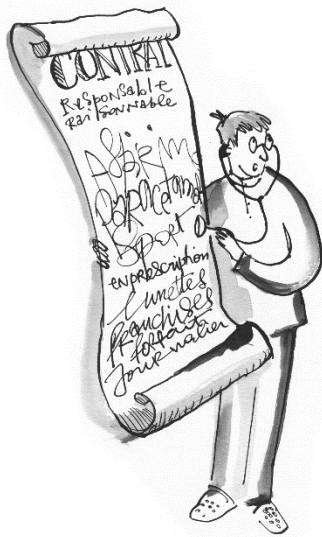 CONTRAT
Responsable
Raisonnable
Paracetamo
Sport
en prescription
lunettes
franchises
forfait
journalier